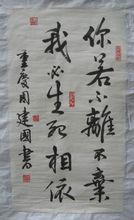 你若不離不棄
我必生死相依
重慶周建國書